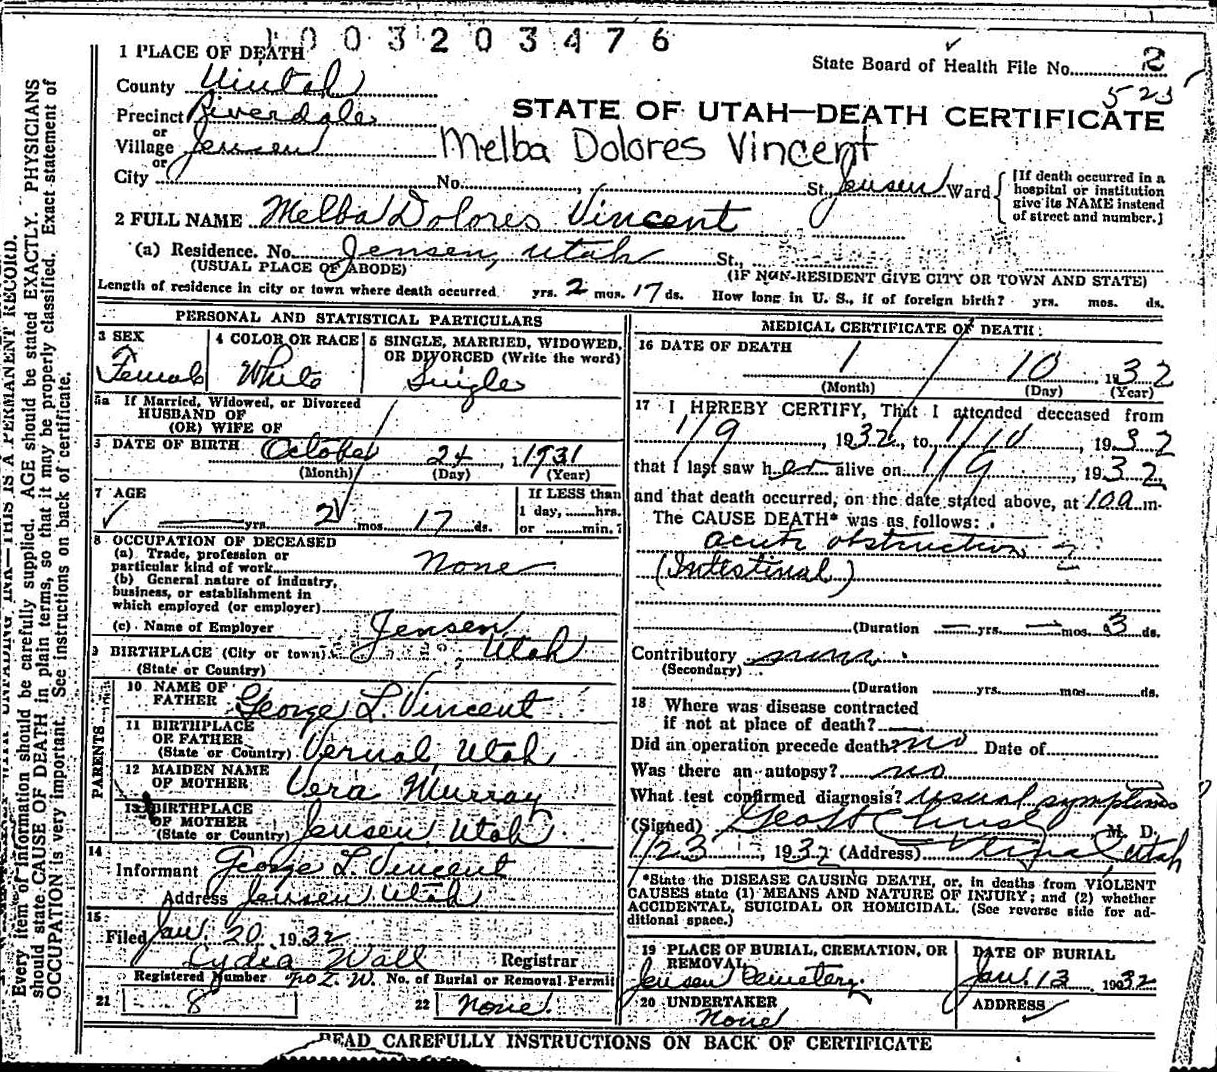 1003203476
1 PLACE OF DEATH
State Board of Health File No. 2
523
County Uintah
STATE OF UTAH—DEATH CERTIFICATE
Precinct Riverdale
or
Village Jensen
Melba Dolores Vincent
or
City No. , St. Jensen Ward
[If death occurred in a
hospital or institution
give its NAME instead
of street and number.]
2 FULL NAME Melba Dolores Vincent
(a) Residence. No. Jensen, Utah St.,
(USUAL PLACE OF ABODE)
(IF NON-RESIDENT GIVE CITY OR TOWN AND STATE)
Length of residence in city or town where death occurred yrs. 2 mos. 17 ds. How long in U. S., if of foreign birth? yrs. mos. ds.
PERSONAL AND STATISTICAL PARTICULARS
3 SEX
Female
4 COLOR OR RACE
White
5 SINGLE, MARRIED, WIDOWED,
OR DIVORCED (Write the word)
Single
5a If Married, Widowed, or Divorced
HUSBAND OF
(OR) WIFE OF
DATE OF BIRTH October 24, 1931
(Month) (Day) (Year)
7 AGE
yrs. 2 mos. 17 ds.
If LESS than
1 day, hrs.
or min.?
8 OCCUPATION OF DECEASED
(a) Trade, profession or
particular kind of work None
(b) General nature of industry,
business, or establishment in
which employed (or employer)
(c) Name of Employer
9 BIRTHPLACE (City or town) Jensen Utah
(State or Country)
PARENTS
10 NAME OF
FATHER George L. Vincent
11 BIRTHPLACE
OR FATHER
(State or Country) Vernal, Utah
12 MAIDEN NAME
OF MOTHER Vera Murray
13 BIRTHPLACE
OF MOTHER
(State or Country) Jensen, Utah
14
Informant George L. Vincent
Address Jensen Utah
15
Filed Jan. 20 1932
Lydia Wall Registrar
Registered Number No. of Burial or Removal Permit
21 8 22 None
MEDICAL CERTIFICATE OF DEATH:
16 DATE OF DEATH
1 10, 1932
(Month) (Day) (Year)
17 I HEREBY CERTIFY, That I attended deceased from
1/9, 1932, to 1/10, 1932
that I last saw her alive on 1/9, 1932,
and that death occurred, on the date stated above, at 10 a m.
The CAUSE DEATH* was as follows:
acute obstruction
(Intestinal)
(Duration — yrs. — mos. 3 ds.
Contributory none
(Secondary)
(Duration yrs. mos. ds.
18 Where was disease contracted
if not at place of death?
Did an operation precede death? no Date of
Was there an autopsy? no
What test confirmed diagnosis? usual symptoms
(Signed) M. D.
1/23, 1932 (Address) Utah
*State the DISEASE CAUSING DEATH, or, in deaths from VIOLENT
CAUSES state (1) MEANS AND NATURE OF INJURY; and (2) whether
ACCIDENTAL, SUICIDAL OR HOMICIDAL. (See reverse side for ad-
ditional space.)
19 PLACE OF BURIAL, CREMATION, OR
REMOVAL
Jensen Cemetery.
DATE OF BURIAL
Jan. 13 1932
20 UNDERTAKER
None
ADDRESS
READ CAREFULLY INSTRUCTIONS ON BACK OF CERTIFICATE
THIS IS A PERMANENT RECORD.
Every item of information should be carefully supplied. AGE should be stated EXACTLY. PHYSICIANS
should state CAUSE OF DEATH in plain terms, so that it may be properly classified. Exact statement of
OCCUPATION is very important. See instructions on back of certificate.